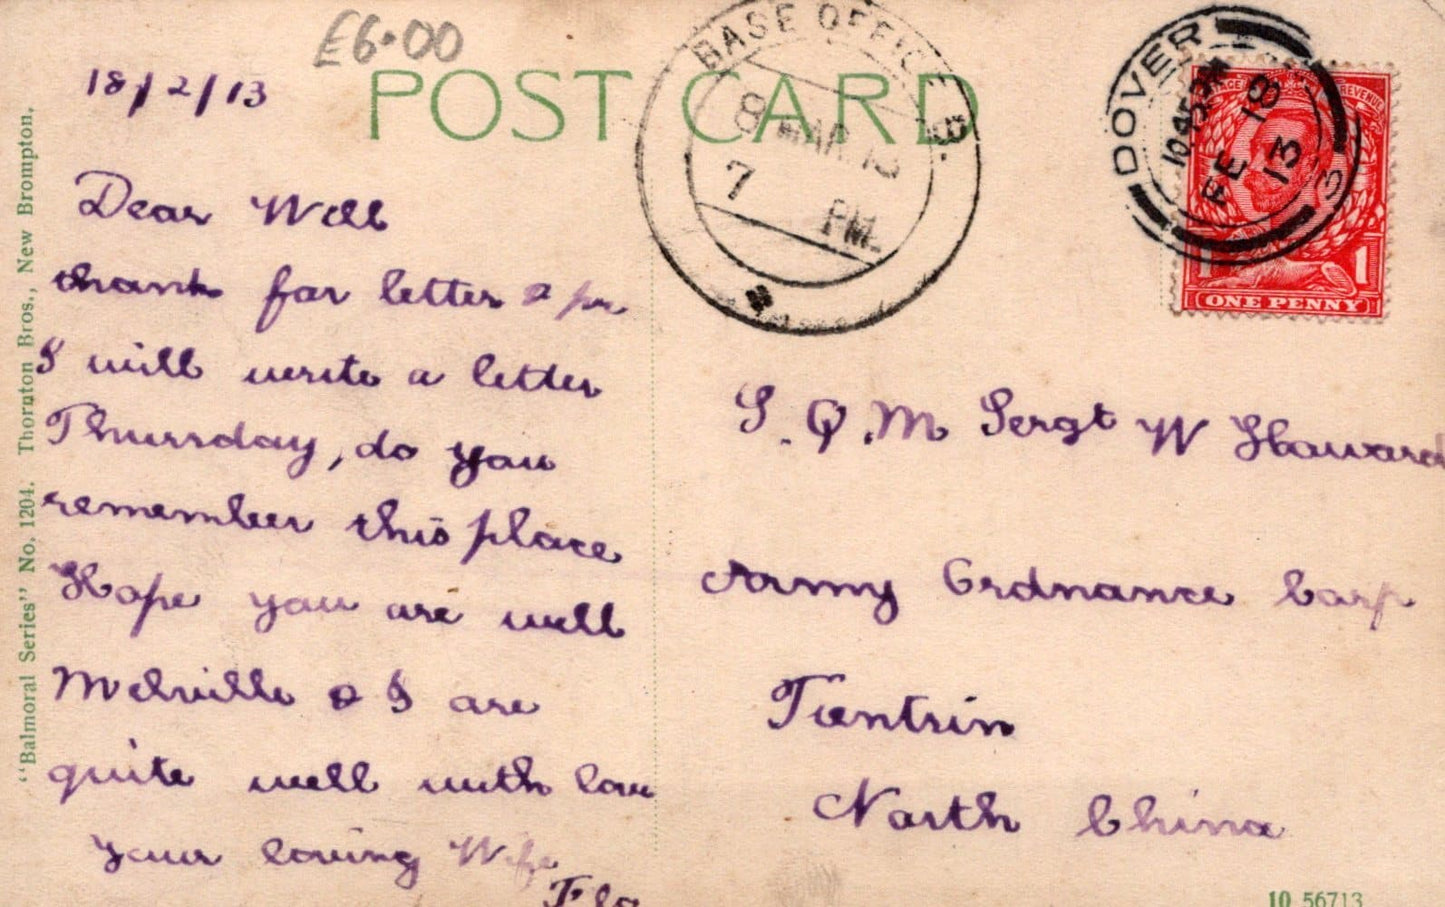 £6.00
POST CARD
18/2/13
BASE OFFICE
8 MAR. 13
7 PM.
DOVER
10.45 PM
FE 18
13
3
REVENUE
1 1
ONE PENNY
Dear Will
thanks for letter &
I will write a letter
Thursday, do you
remember this place
Hope you are well
Melville & I are
quite well with love
your loving Wife
Flo
S. Q. M. Sergt W Howard
Army Ordnance Corp
Tientsin
North China
"Balmoral Series" No. 1204. Thornton Bros., New Brompton.
10 56713